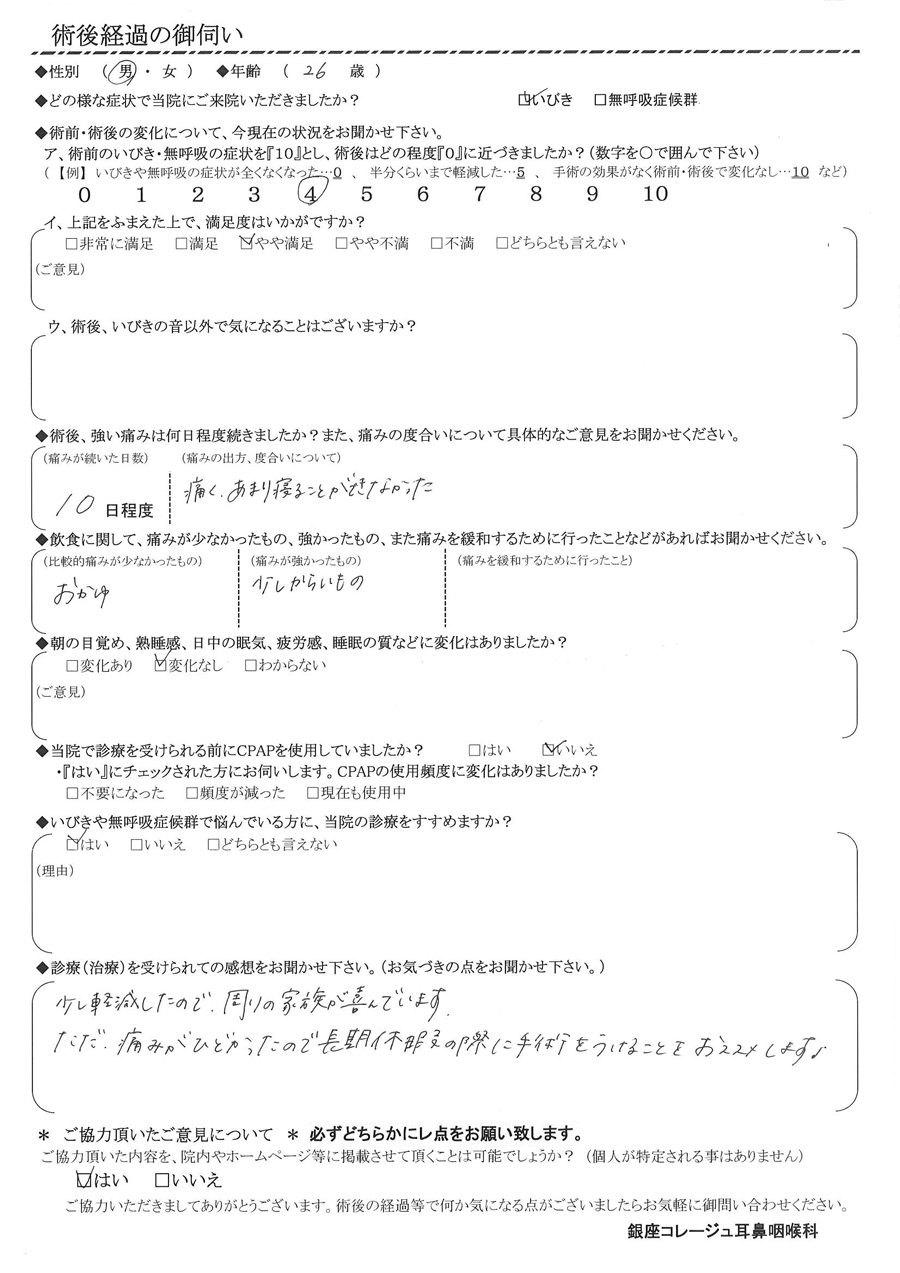 術後経過の御伺い
◆性別 （ 男 ・ 女 ） ◆年齢 （ 26 歳 ）
◆どの様な症状で当院にご来院いただきましたか？ ☑いびき □無呼吸症候群
◆術前・術後の変化について、今現在の状況をお聞かせ下さい。
ア、術前のいびき・無呼吸の症状を『10』とし、術後はどの程度『0』に近づきましたか？（数字を○で囲んで下さい）
（【例】いびきや無呼吸の症状が全くなくなった…0 、 半分くらいまで軽減した…5 、 手術の効果がなく術前・術後で変化なし…10 など）
0 1 2 3 4 5 6 7 8 9 10
イ、上記をふまえた上で、満足度はいかがですか？
□非常に満足 □満足 ☑やや満足 □やや不満 □不満 □どちらとも言えない
（ご意見）
ウ、術後、いびきの音以外で気になることはございますか？
◆術後、強い痛みは何日程度続きましたか？また、痛みの度合いについて具体的なご意見をお聞かせください。
（痛みが続いた日数） （痛みの出方、度合いについて）
10 日程度 痛く、あまり寝ることができなかった
◆飲食に関して、痛みが少なかったもの、強かったもの、また痛みを緩和するために行ったことなどがあればお聞かせください。
（比較的痛みが少なかったもの） （痛みが強かったもの） （痛みを緩和するために行ったこと）
おかゆ 少しからいもの
◆朝の目覚め、熟睡感、日中の眠気、疲労感、睡眠の質などに変化はありましたか？
□変化あり ☑変化なし □わからない
（ご意見）
◆当院で診療を受けられる前にCPAPを使用していましたか？ □はい ☑いいえ
・『はい』にチェックされた方にお伺いします。CPAPの使用頻度に変化はありましたか？
□不要になった □頻度が減った □現在も使用中
◆いびきや無呼吸症候群で悩んでいる方に、当院の診療をすすめますか？
☑はい □いいえ □どちらとも言えない
（理由）
◆診療（治療）を受けられての感想をお聞かせ下さい。（お気づきの点をお聞かせ下さい。）
少し軽減したので、周りの家族が喜んでいます。
ただ、痛みがひどかったので長期休暇の際に手術をうけることをおススメします♪
＊ ご協力頂いたご意見について ＊ 必ずどちらかにレ点をお願い致します。
ご協力頂いた内容を、院内やホームページ等に掲載させて頂くことは可能でしょうか？（個人が特定される事はありません）
☑はい □いいえ
ご協力いただきましてありがとうございます。術後の経過等で何か気になる点がございましたらお気軽に御問い合わせください。
銀座コレージュ耳鼻咽喉科